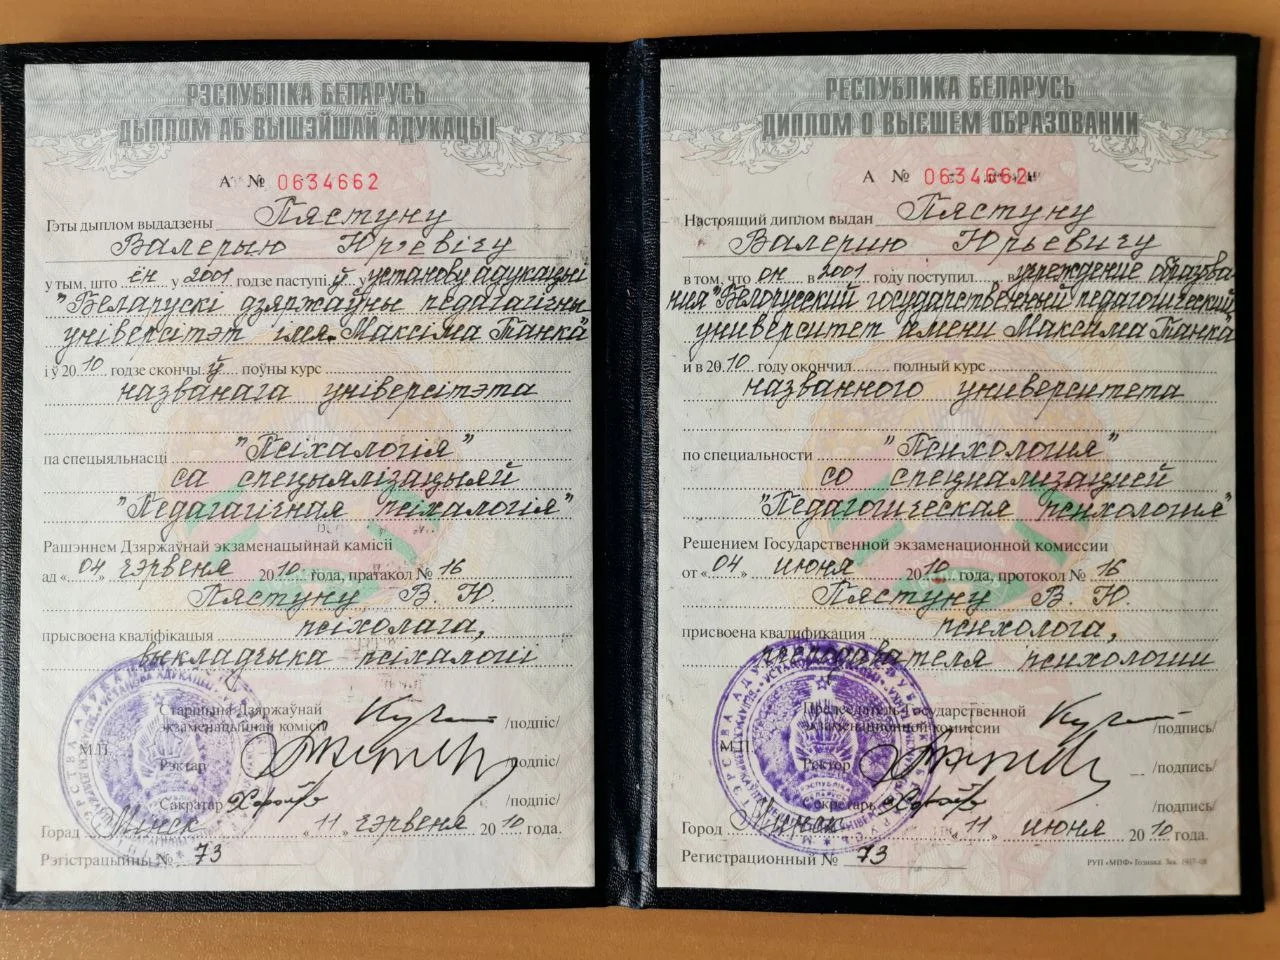 РЭСПУБЛІКА БЕЛАРУСЬ
ДЫПЛОМ АБ ВЫШЭЙШАЙ АДУКАЦЫІ
А № 0634662
Гэты дыплом выдадзены Пястуну
Валерыю Юр'евічу
у тым, што ён у 2001 годзе паступіў ў установу адукацыі
"Беларускі дзяржаўны педагагічны
універсітэт імя Максіма Танка"
і ў 2010 годзе скончыў поўны курс
названага універсітэта
па спецыяльнасці "Псіхалогія"
са спецыялізацыяй
"Педагагічная псіхалогія"
Рашэннем Дзяржаўнай экзаменацыйнай камісіі
ад «04» чэрвеня 2010 года, пратакол № 16
Пястуну В. Ю.
прысвоена кваліфікацыя псіхолага,
выкладчыка псіхалогіі
Старшыня Дзяржаўнай
экзаменацыйнай камісіі /подпіс/
М.П.
Рэктар /подпіс/
Сакратар /подпіс/
Горад Мінск «11» чэрвеня 2010 года.
Рэгістрацыйны № 73
РЕСПУБЛИКА БЕЛАРУСЬ
ДИПЛОМ О ВЫСШЕМ ОБРАЗОВАНИИ
А № 0634662
Настоящий диплом выдан Пястуну
Валерию Юрьевичу
в том, что он в 2001 году поступил в учреждение образова-
ния "Белорусский государственный педагогический
университет имени Максима Танка"
и в 2010 году окончил полный курс
названного университета
по специальности "Психология"
со специализацией
"Педагогическая психология"
Решением Государственной экзаменационной комиссии
от «04» июня 2010 года, протокол № 16
Пястуну В. Ю.
присвоена квалификация психолога,
преподавателя психологии
Председатель Государственной
экзаменационной комиссии /подпись/
М.П.
Ректор /подпись/
Секретарь /подпись/
Город Минск «11» июня 2010 года.
Регистрационный № 73